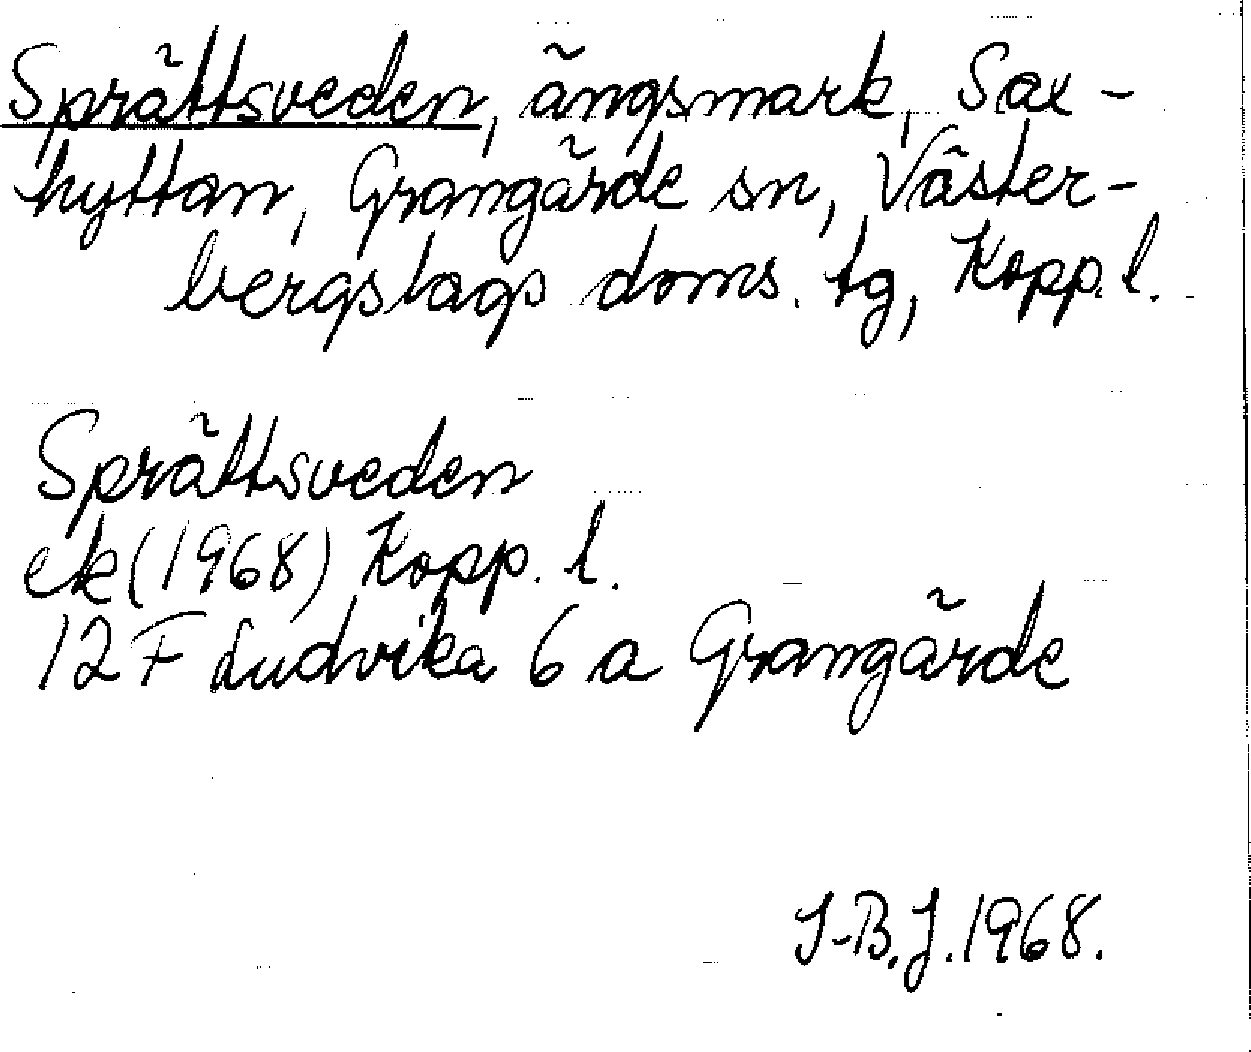 Sprättsveden, ängsmark, Sax-
hyttan, Grangärde sn, Väster-
bergslags doms. tg, Kopp. l.
Sprättsveden
ek (1968) Kopp. l.
12 F Ludvika 6 a Grangärde
I-B. J. 1968.